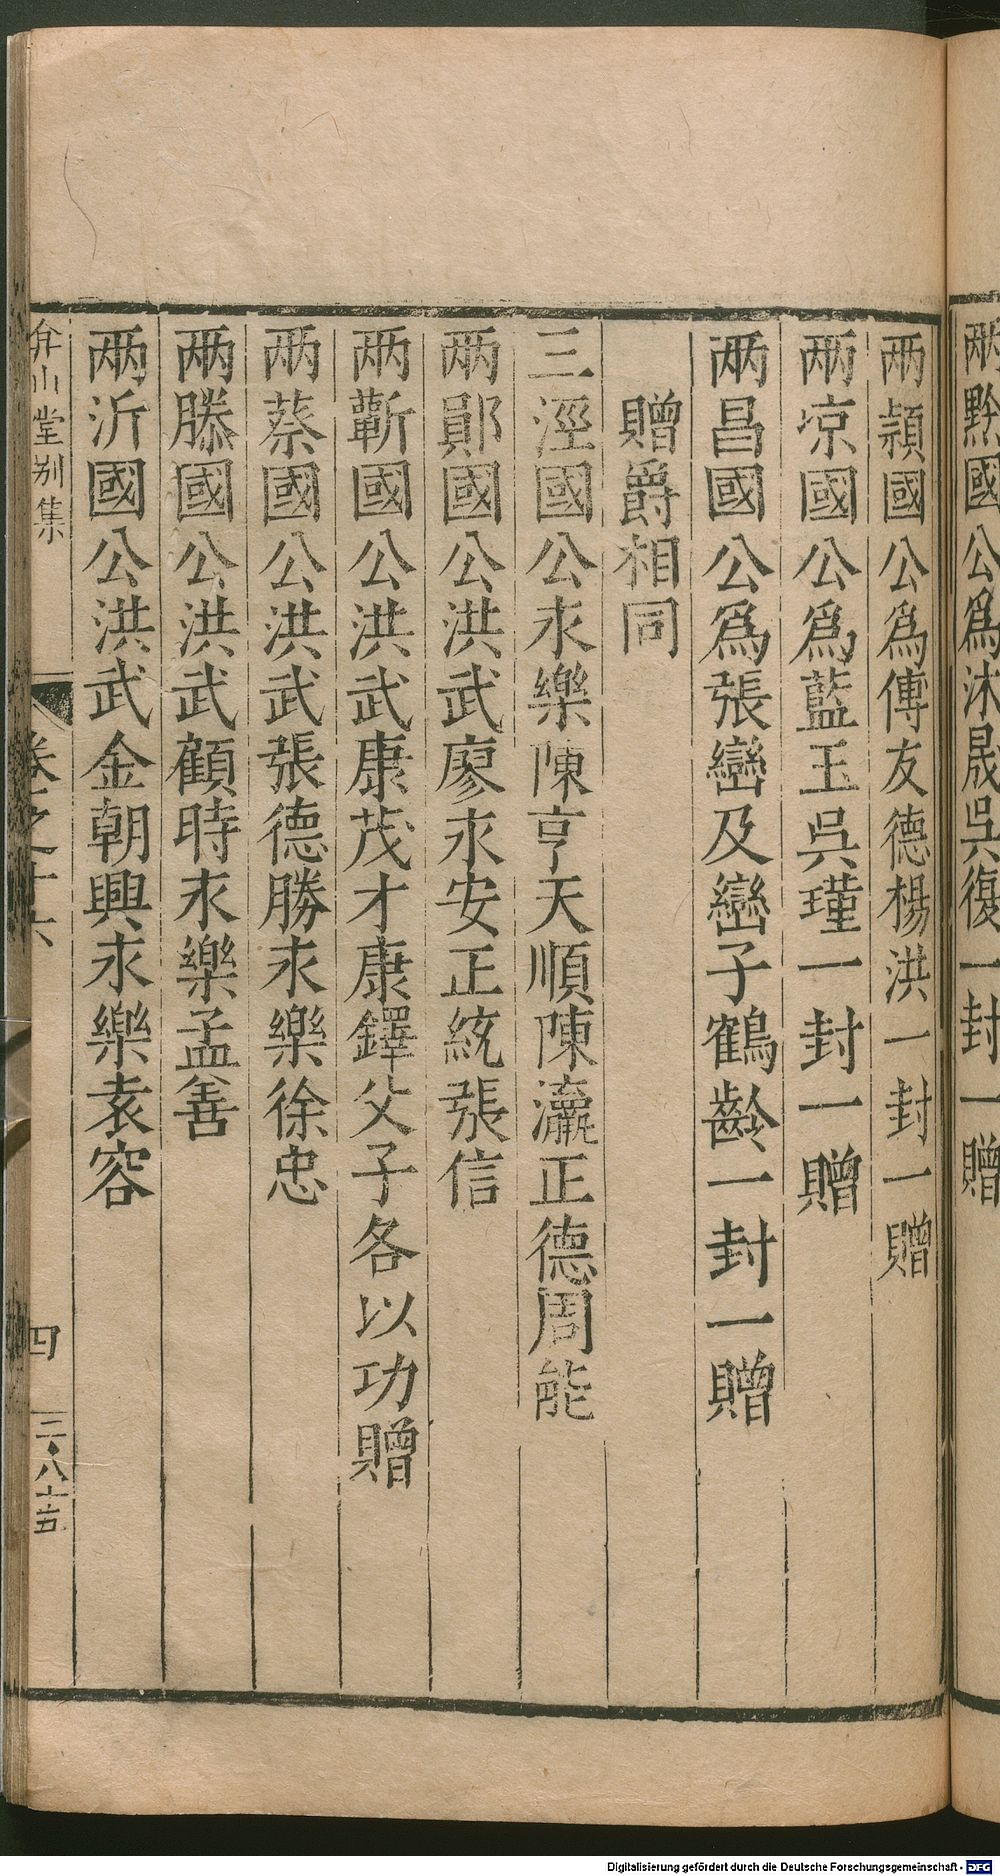 两黔國公爲沐晟吳復一封一贈
兩頴國公爲傅友德楊洪一封一贈
兩凉國公爲藍玉吳瑾一封一贈
兩昌國公爲張巒及巒子鶴齡一封一贈
贈爵相同
三涇國公永樂陳亨天順陳瀛正德周能
两鄖國公洪武廖永安正統張信
两蘄國公洪武康茂才康鐸父子各以功贈
两蔡國公洪武張德勝永樂徐忠
两滕國公洪武顧時永樂孟善
两沂國公洪武金朝興永樂袁容
弇山堂别集
卷之十六
四
二八十五
Digitalisierung gefördert durch die Deutsche Forschungsgemeinschaft - DFG